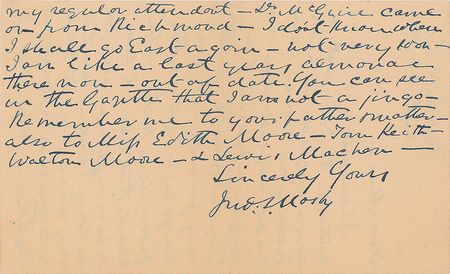 my regular attendant – Dr. McGuire came
on from Richmond – I don't know when
I shall go East again – not very soon –
I am like a last years almanac
there now – out of date. You can see
in the Gazette that I am not a jingo –
Remember me to your father & mother –
also to Miss Edith Moore – Tom Keith –
Walton Moore – & Lewis Machen –
Sincerely Yours
Jno. S. Mosby